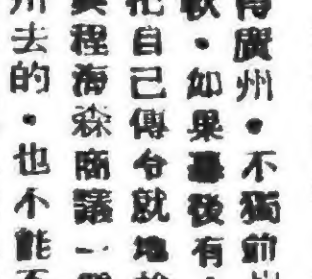 廣州・不獨前
・如果後有
把自己傳令就地
程海森商議一
州去的・也不能